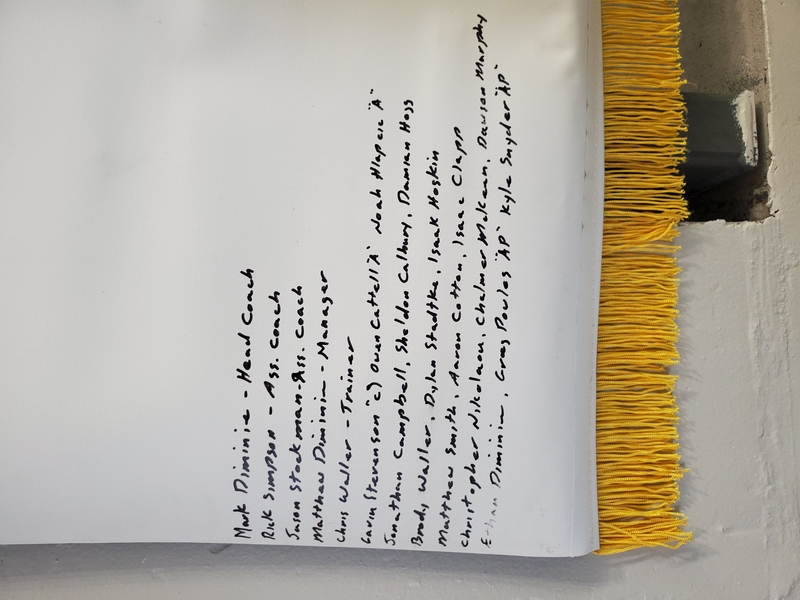 Mark Diminie - Head Coach
Rick Simpson - Ass. Coach
Jason Stockman - Ass. Coach
Matthew Diminie - Manager
Chris Waller - Trainer
Gavin Stevenson "c) Owen Cattell "A" Noah Hlapcic "A"
Jonathan Campbell, Sheldon Calbury, Damian Hogg
Brody Waller, Dylan Stadtke, Isaak Hoskin
Matthew Smith, Aaron Cotton, Isaac Clapp
Christopher Nikolaou, Chalmer McKean, Dawson Murphy
Ethan Diminie, Greg Powles "AP" Kyle Snyder "AP"